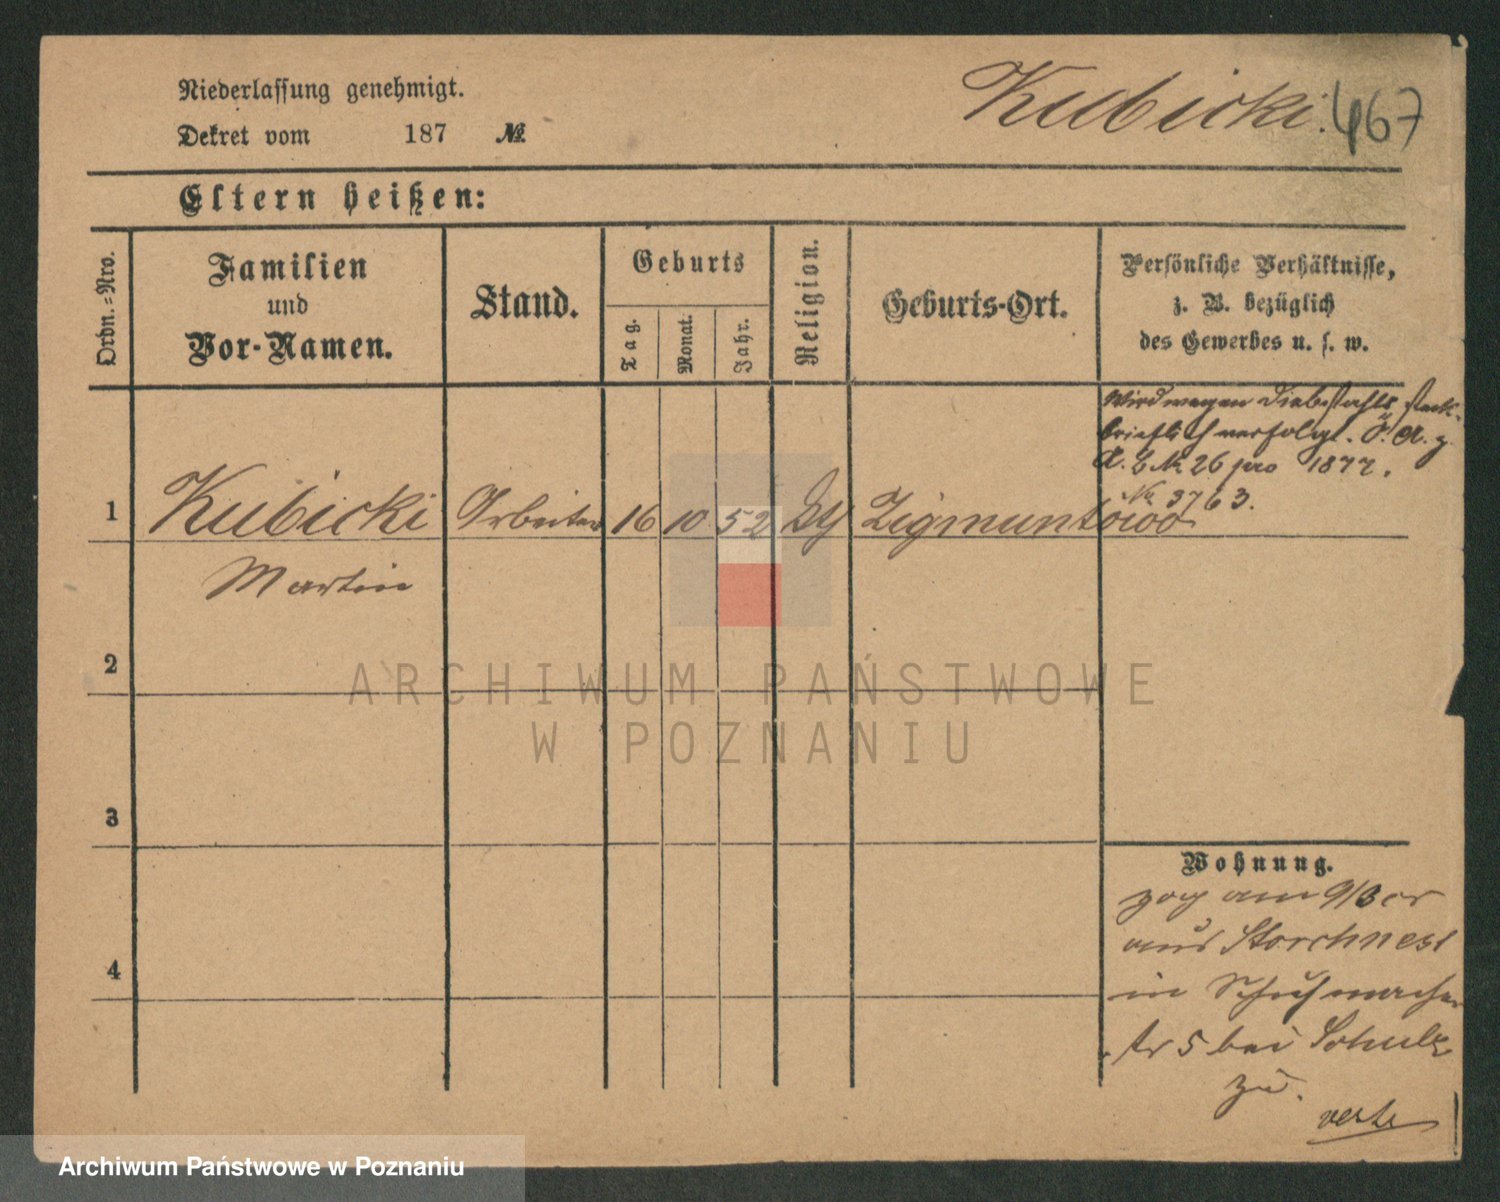 Niederlassung genehmigt.
Kubicki. 467
Dekret vom 187 №
Eltern heißen:
Ordn.-Nro.
Familien
und
Vor-Namen.
Stand.
Geburts
Tag.
Monat.
Jahr.
Religion.
Geburts-Ort.
Persönliche Verhältnisse,
z. B. bezüglich
des Gewerbes u. s. w.
Wird wegen Diebstahls steck-
brieflich verfolgt. Ö. A. z.
A. B. № 26 pro 1877.
No 3763.
1 Kubicki Arbeiter 16 10 52 Zigmuntowo
Martin
2
3
4
Wohnung.
zog am 9/3 cr
aus Storchnest
in Schuhmacher
str 5 bei Schulz
zu.
verte
ARCHIWUM PAŃSTWOWE
W POZNANIU
Archiwum Państwowe w Poznaniu